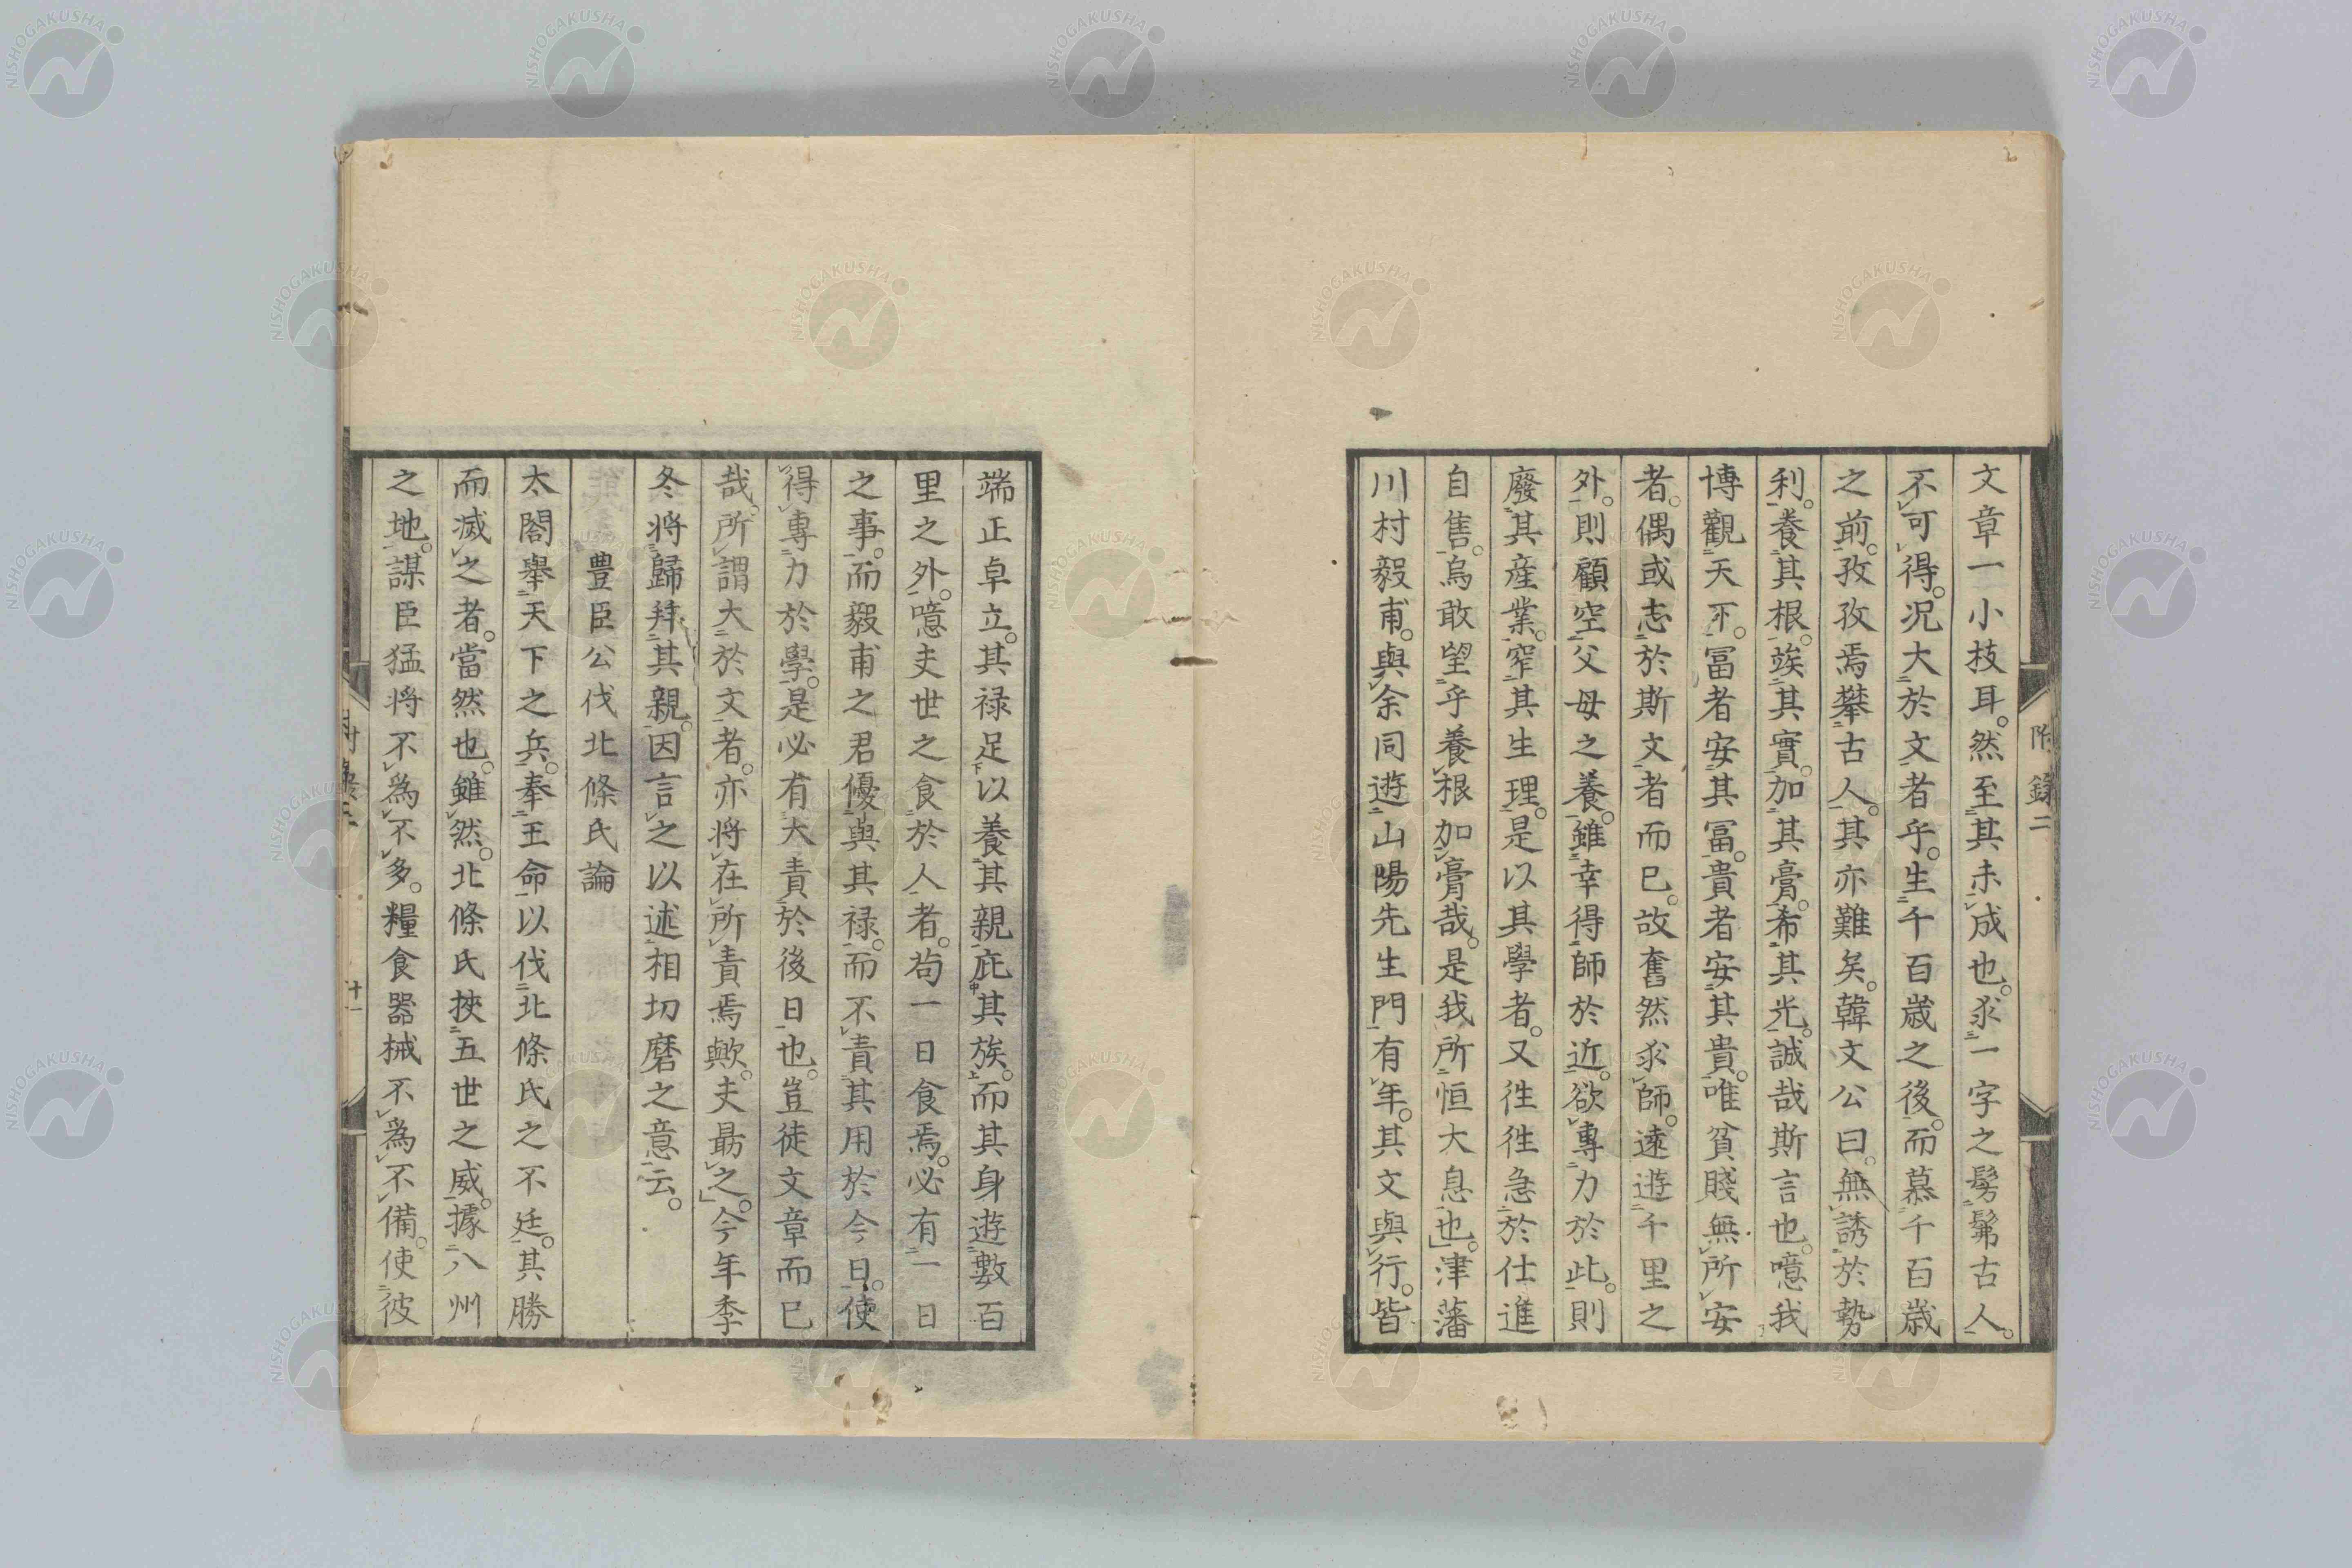 附錄二
文章一小技耳。然至其未成也。求一字之髣髴古人。
不可得。况大於文者乎。生千百歲之後。而慕千百歲
之前。孜孜焉攀古人。其亦難矣。韓文公曰。無誘於勢
利。養其根。竢其實。加其膏。希其光。誠哉斯言也。噫我
博觀天下。冨者安其冨。貴者安其貴。唯貧賤無所安
者。偶或志於斯文者而已。故奮然求師。遠遊千里之
外。則顧空父母之養。雖幸得師於近。欲專力於此。則
廢其産業。窄其生理。是以其學者。又徃徃急於仕進
自售。烏敢望乎養根加膏哉。是我所恒大息也。津藩
川村毅甫。與余同遊山陽先生門有年。其文與行。皆
端正卓立。其禄足以養其親庇其族。而其身遊數百
里之外。噫夫世之食於人者。苟一日食焉。必有一日
之事。而毅甫之君優與其禄。而不責其用於今日。使
得專力於學。是必有大責於後日也。豈徒文章而已
哉。所謂大於文者。亦将在所責焉歟。夫勗之。今年季
冬将歸拜其親。因言之以述相切磨之意云。
豊臣公伐北條氏論
太閤舉天下之兵。奉王命以伐北條氏之不廷。其勝
而滅之者。當然也。雖然。北條氏挾五世之威。據八州
之地。謀臣猛将不爲不多。糧食器械不爲不備。使彼
附錄二
十一
NISHOGAKUSHA